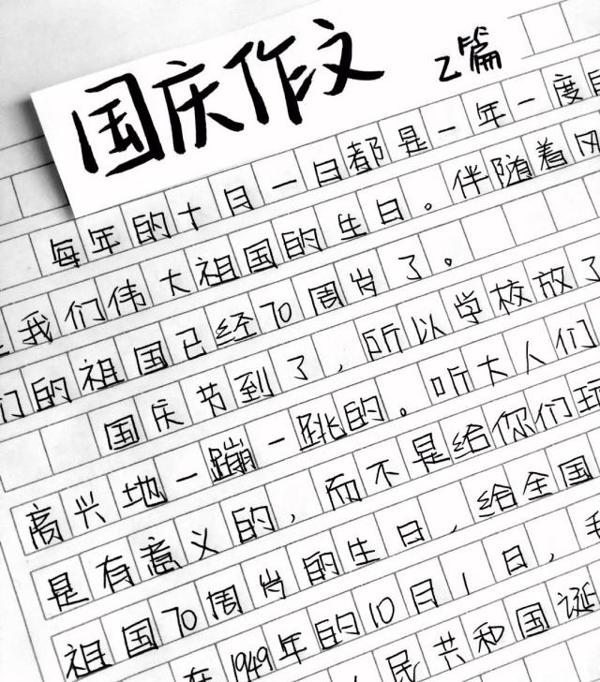 国庆作文 2篇
每年的十月一日都是一年一度
我们伟大祖国的生日。伴随着风
们的祖国已经70周岁了。
国庆节到了，所以学校放了
高兴地一蹦一跳的。听大人们
是有意义的，而不是给你们
祖国70周岁的生日，给全国
在1949年的10月1日，
民共和国诞